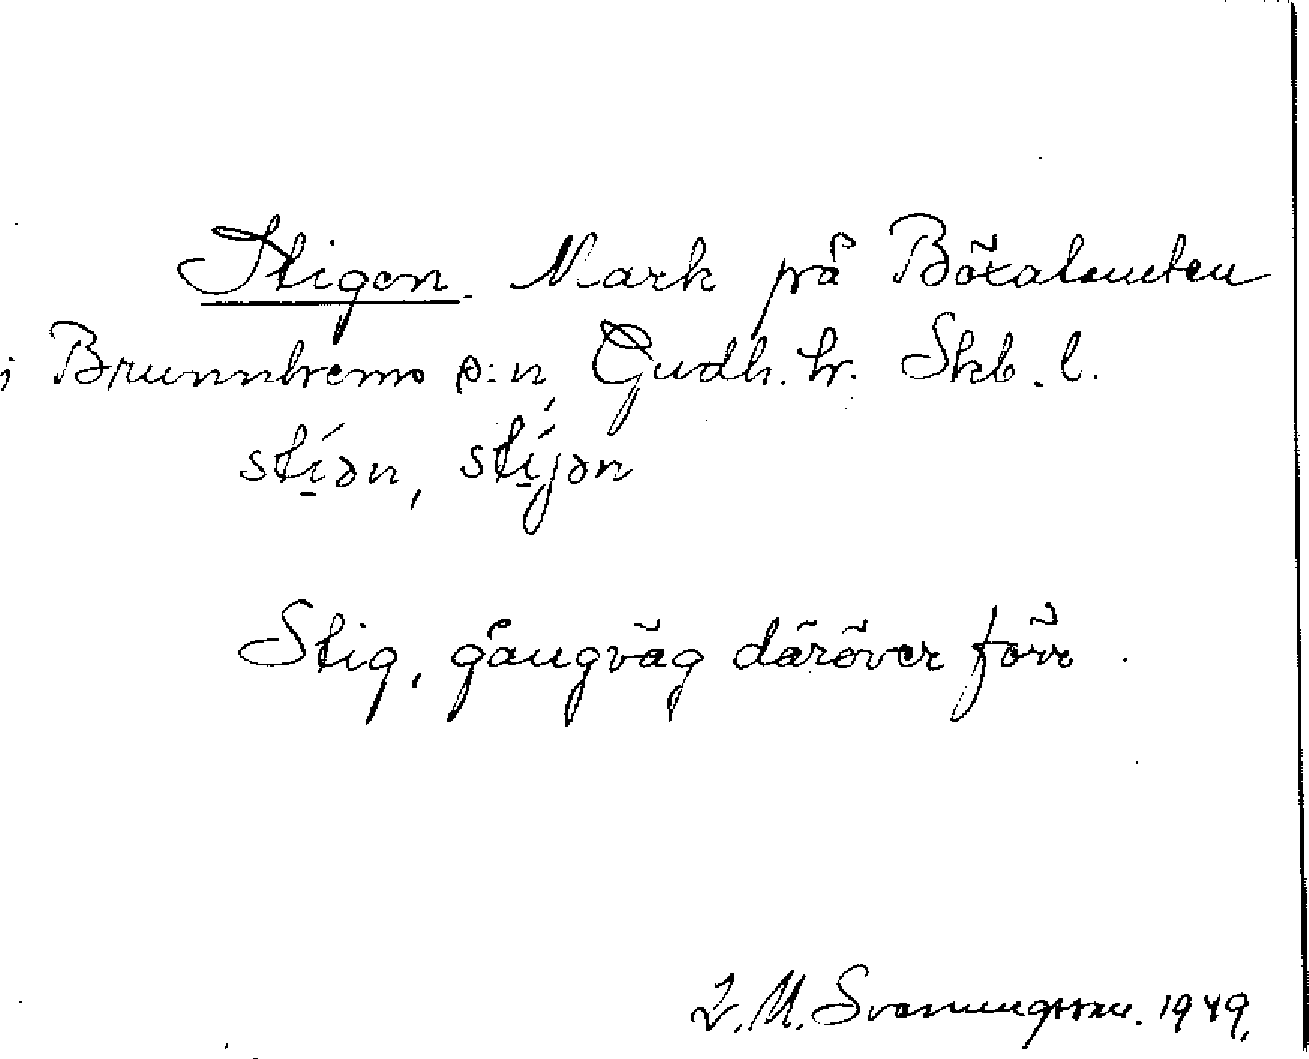 Stigen. Mark på Böxatomten
i Brunnhems s:n, Gudh. hr. Skb. l.
stíən, stíjən
Stig, gångväg däröver förr.
L. M. Svenungsson. 1949.